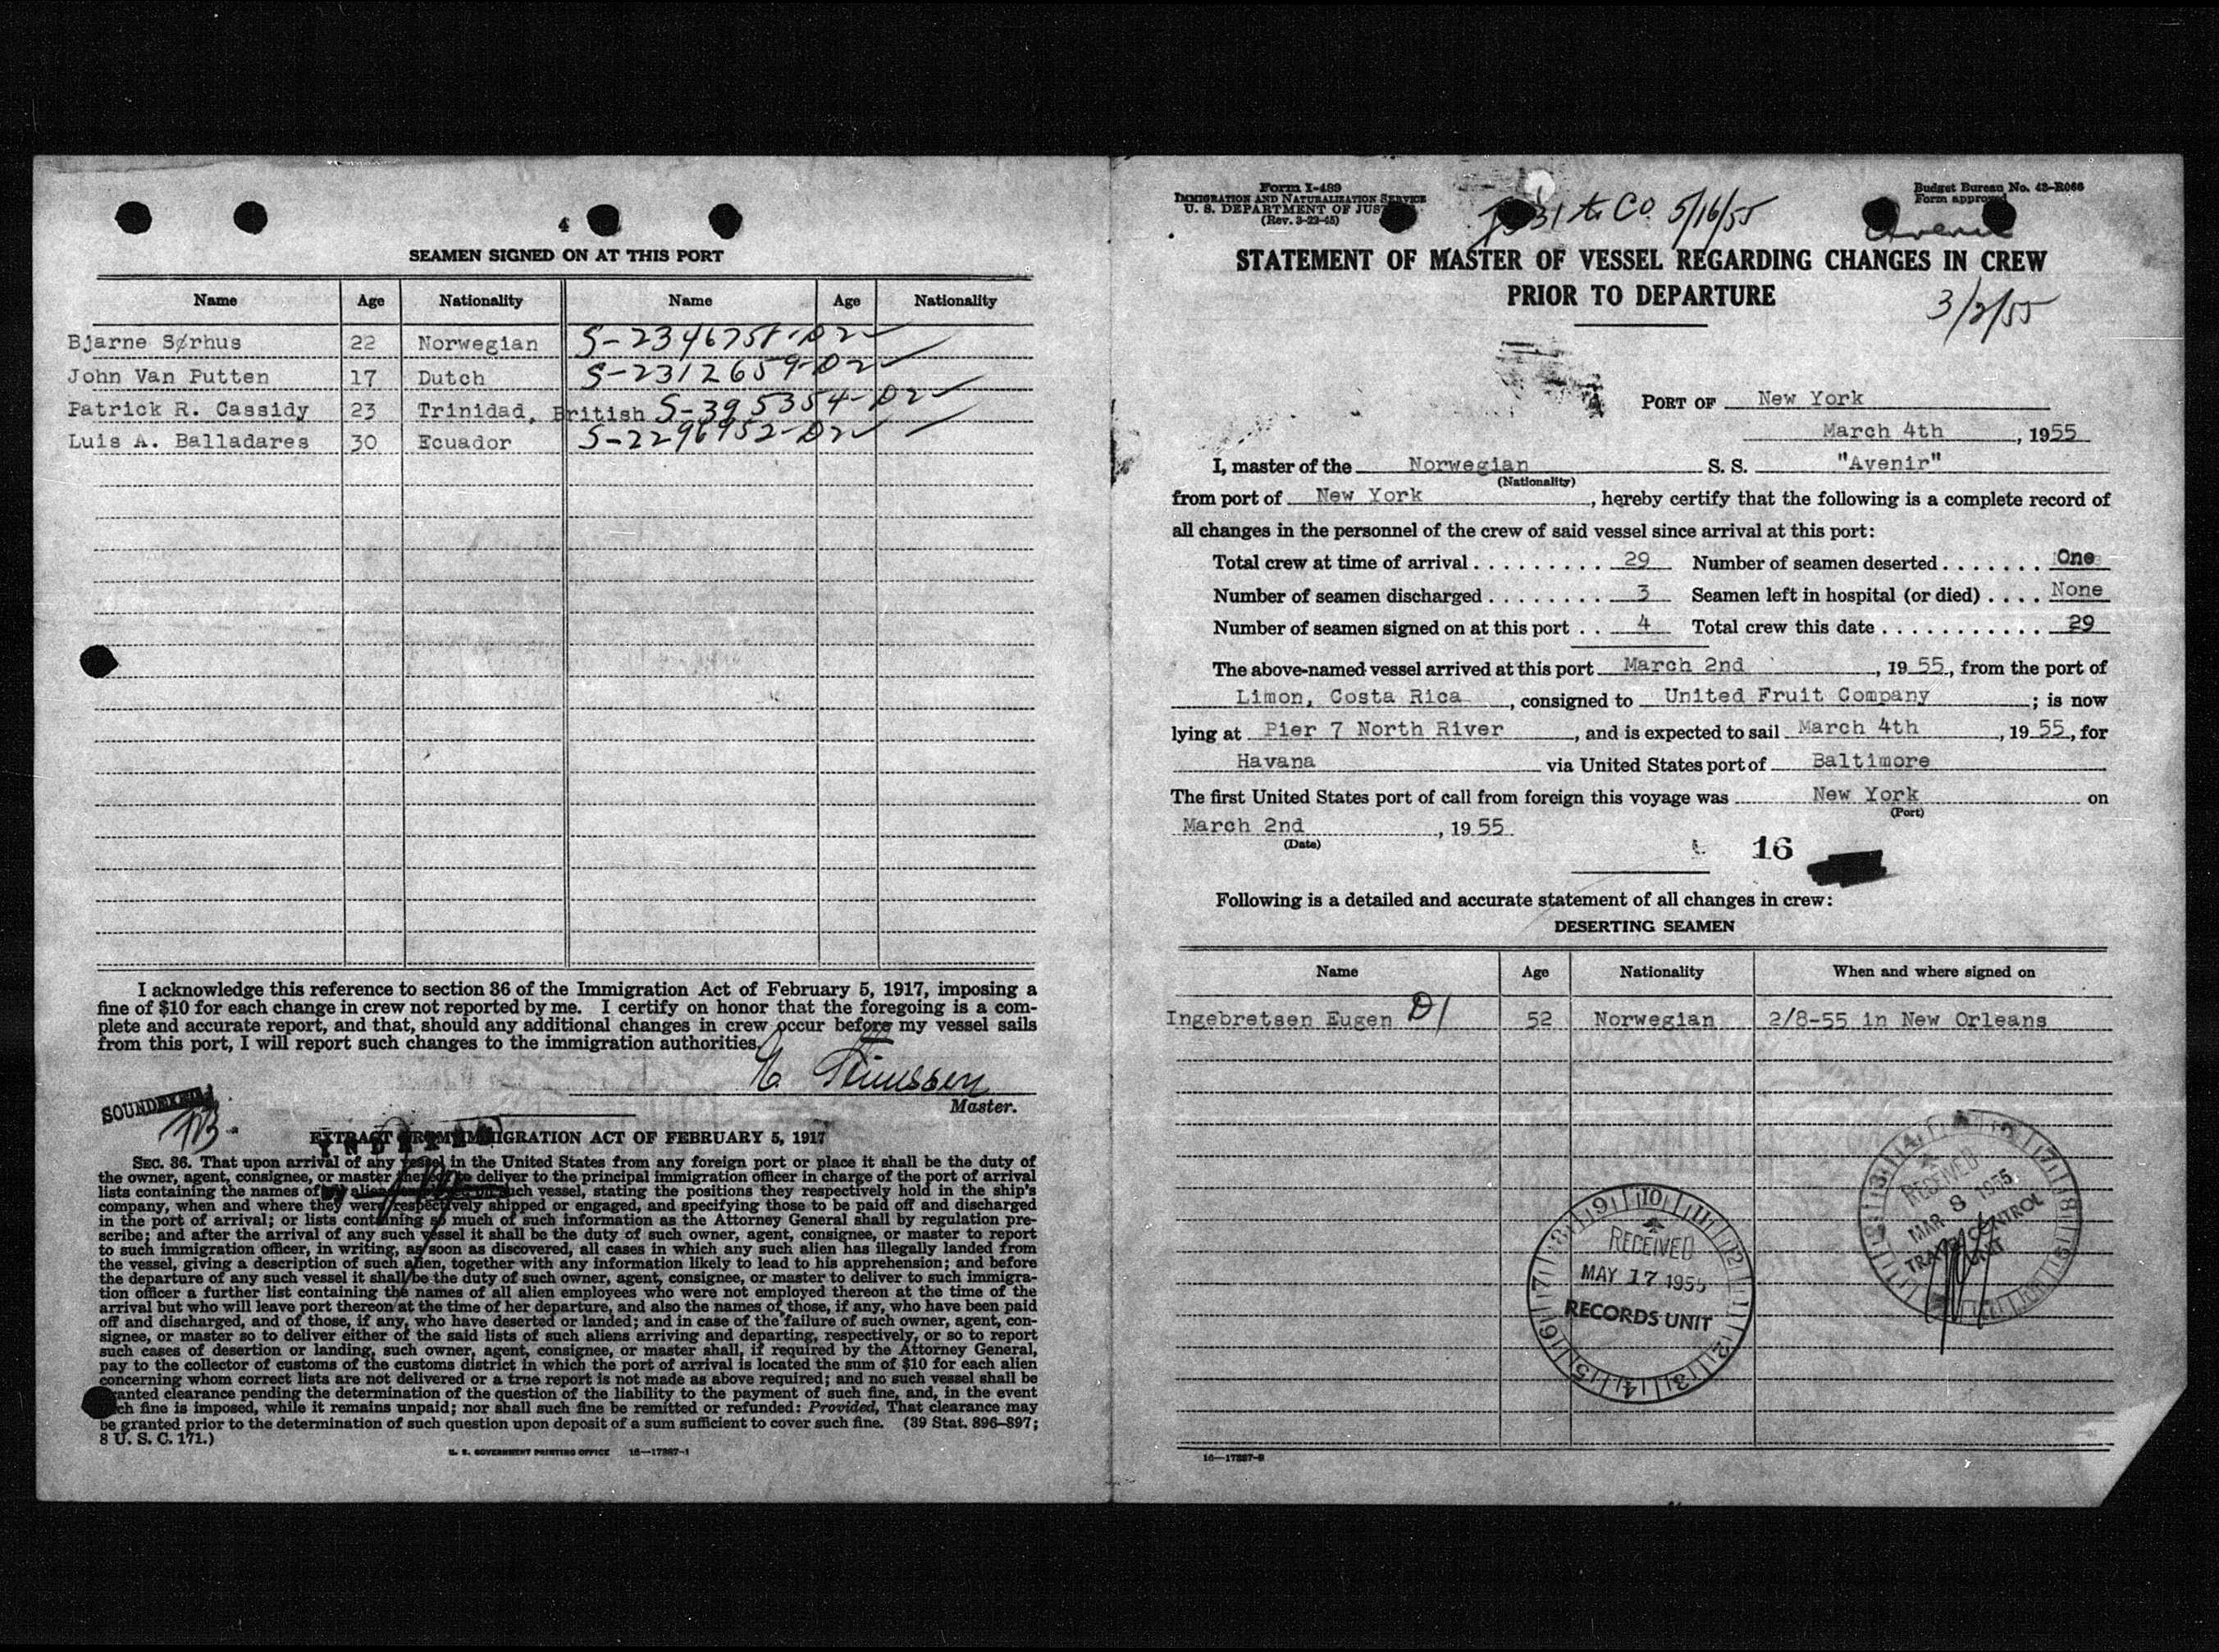 4
SEAMEN SIGNED ON AT THIS PORT
Name Age Nationality Name Age Nationality
Bjarne Sørhus 22 Norwegian S-2346758-D2
John Van Putten 17 Dutch S-2312659-D2
Patrick R. Cassidy 23 Trinidad, British S-395354-D2
Luis A. Balladares 30 Ecuador S-2296952-D2
I acknowledge this reference to section 36 of the Immigration Act of February 5, 1917, imposing a
fine of $10 for each change in crew not reported by me. I certify on honor that the foregoing is a com-
plete and accurate report, and that, should any additional changes in crew occur before my vessel sails
from this port, I will report such changes to the immigration authorities.
Master.
SOUNDEXED
EXTRACT FROM IMMIGRATION ACT OF FEBRUARY 5, 1917
SEC. 36. That upon arrival of any vessel in the United States from any foreign port or place it shall be the duty of
the owner, agent, consignee, or master thereof to deliver to the principal immigration officer in charge of the port of arrival
lists containing the names of all aliens employed on such vessel, stating the positions they respectively hold in the ship's
company, when and where they were respectively shipped or engaged, and specifying those to be paid off and discharged
in the port of arrival; or lists containing so much of such information as the Attorney General shall by regulation pre-
scribe; and after the arrival of any such vessel it shall be the duty of such owner, agent, consignee, or master to report
to such immigration officer, in writing, as soon as discovered, all cases in which any such alien has illegally landed from
the vessel, giving a description of such alien, together with any information likely to lead to his apprehension; and before
the departure of any such vessel it shall be the duty of such owner, agent, consignee, or master to deliver to such immigra-
tion officer a further list containing the names of all alien employees who were not employed thereon at the time of the
arrival but who will leave port thereon at the time of her departure, and also the names of those, if any, who have been paid
off and discharged, and of those, if any, who have deserted or landed; and in case of the failure of such owner, agent, con-
signee, or master so to deliver either of the said lists of such aliens arriving and departing, respectively, or so to report
such cases of desertion or landing, such owner, agent, consignee, or master shall, if required by the Attorney General,
pay to the collector of customs of the customs district in which the port of arrival is located the sum of $10 for each alien
concerning whom correct lists are not delivered or a true report is not made as above required; and no such vessel shall be
granted clearance pending the determination of the question of the liability to the payment of such fine, and, in the event
such fine is imposed, while it remains unpaid; nor shall such fine be remitted or refunded: Provided, That clearance may
be granted prior to the determination of such question upon deposit of a sum sufficient to cover such fine. (39 Stat. 896-897;
8 U. S. C. 171.)
U. S. GOVERNMENT PRINTING OFFICE 16—17887-1
Form I-489
IMMIGRATION AND NATURALIZATION SERVICE
U. S. DEPARTMENT OF JUSTICE
(Rev. 3-22-45)
Co. 5/16/55
Budget Bureau No. 43-R066
Form approved
Avenir
STATEMENT OF MASTER OF VESSEL REGARDING CHANGES IN CREW
PRIOR TO DEPARTURE
3/2/55
PORT OF New York
March 4th, 1955
I, master of the Norwegian S. S. "Avenir"
(Nationality)
from port of New York, hereby certify that the following is a complete record of
all changes in the personnel of the crew of said vessel since arrival at this port:
Total crew at time of arrival . . . . . . . . . 29 Number of seamen deserted . . . . . . . One
Number of seamen discharged . . . . . . . . 3 Seamen left in hospital (or died) . . . . None
Number of seamen signed on at this port . . 4 Total crew this date . . . . . . . . . . . 29
The above-named vessel arrived at this port March 2nd, 1955, from the port of
Limon, Costa Rica, consigned to United Fruit Company; is now
lying at Pier 7 North River, and is expected to sail March 4th, 1955, for
Havana via United States port of Baltimore
The first United States port of call from foreign this voyage was New York on
(Port)
March 2nd, 1955
(Date)
16
Following is a detailed and accurate statement of all changes in crew:
DESERTING SEAMEN
Name Age Nationality When and where signed on
Ingebretsen Eugen D1 52 Norwegian 2/8-55 in New Orleans
RECEIVED
MAR 8 1955
TRAVEL CONTROL
UNIT
RECEIVED
MAY 17 1955
RECORDS UNIT